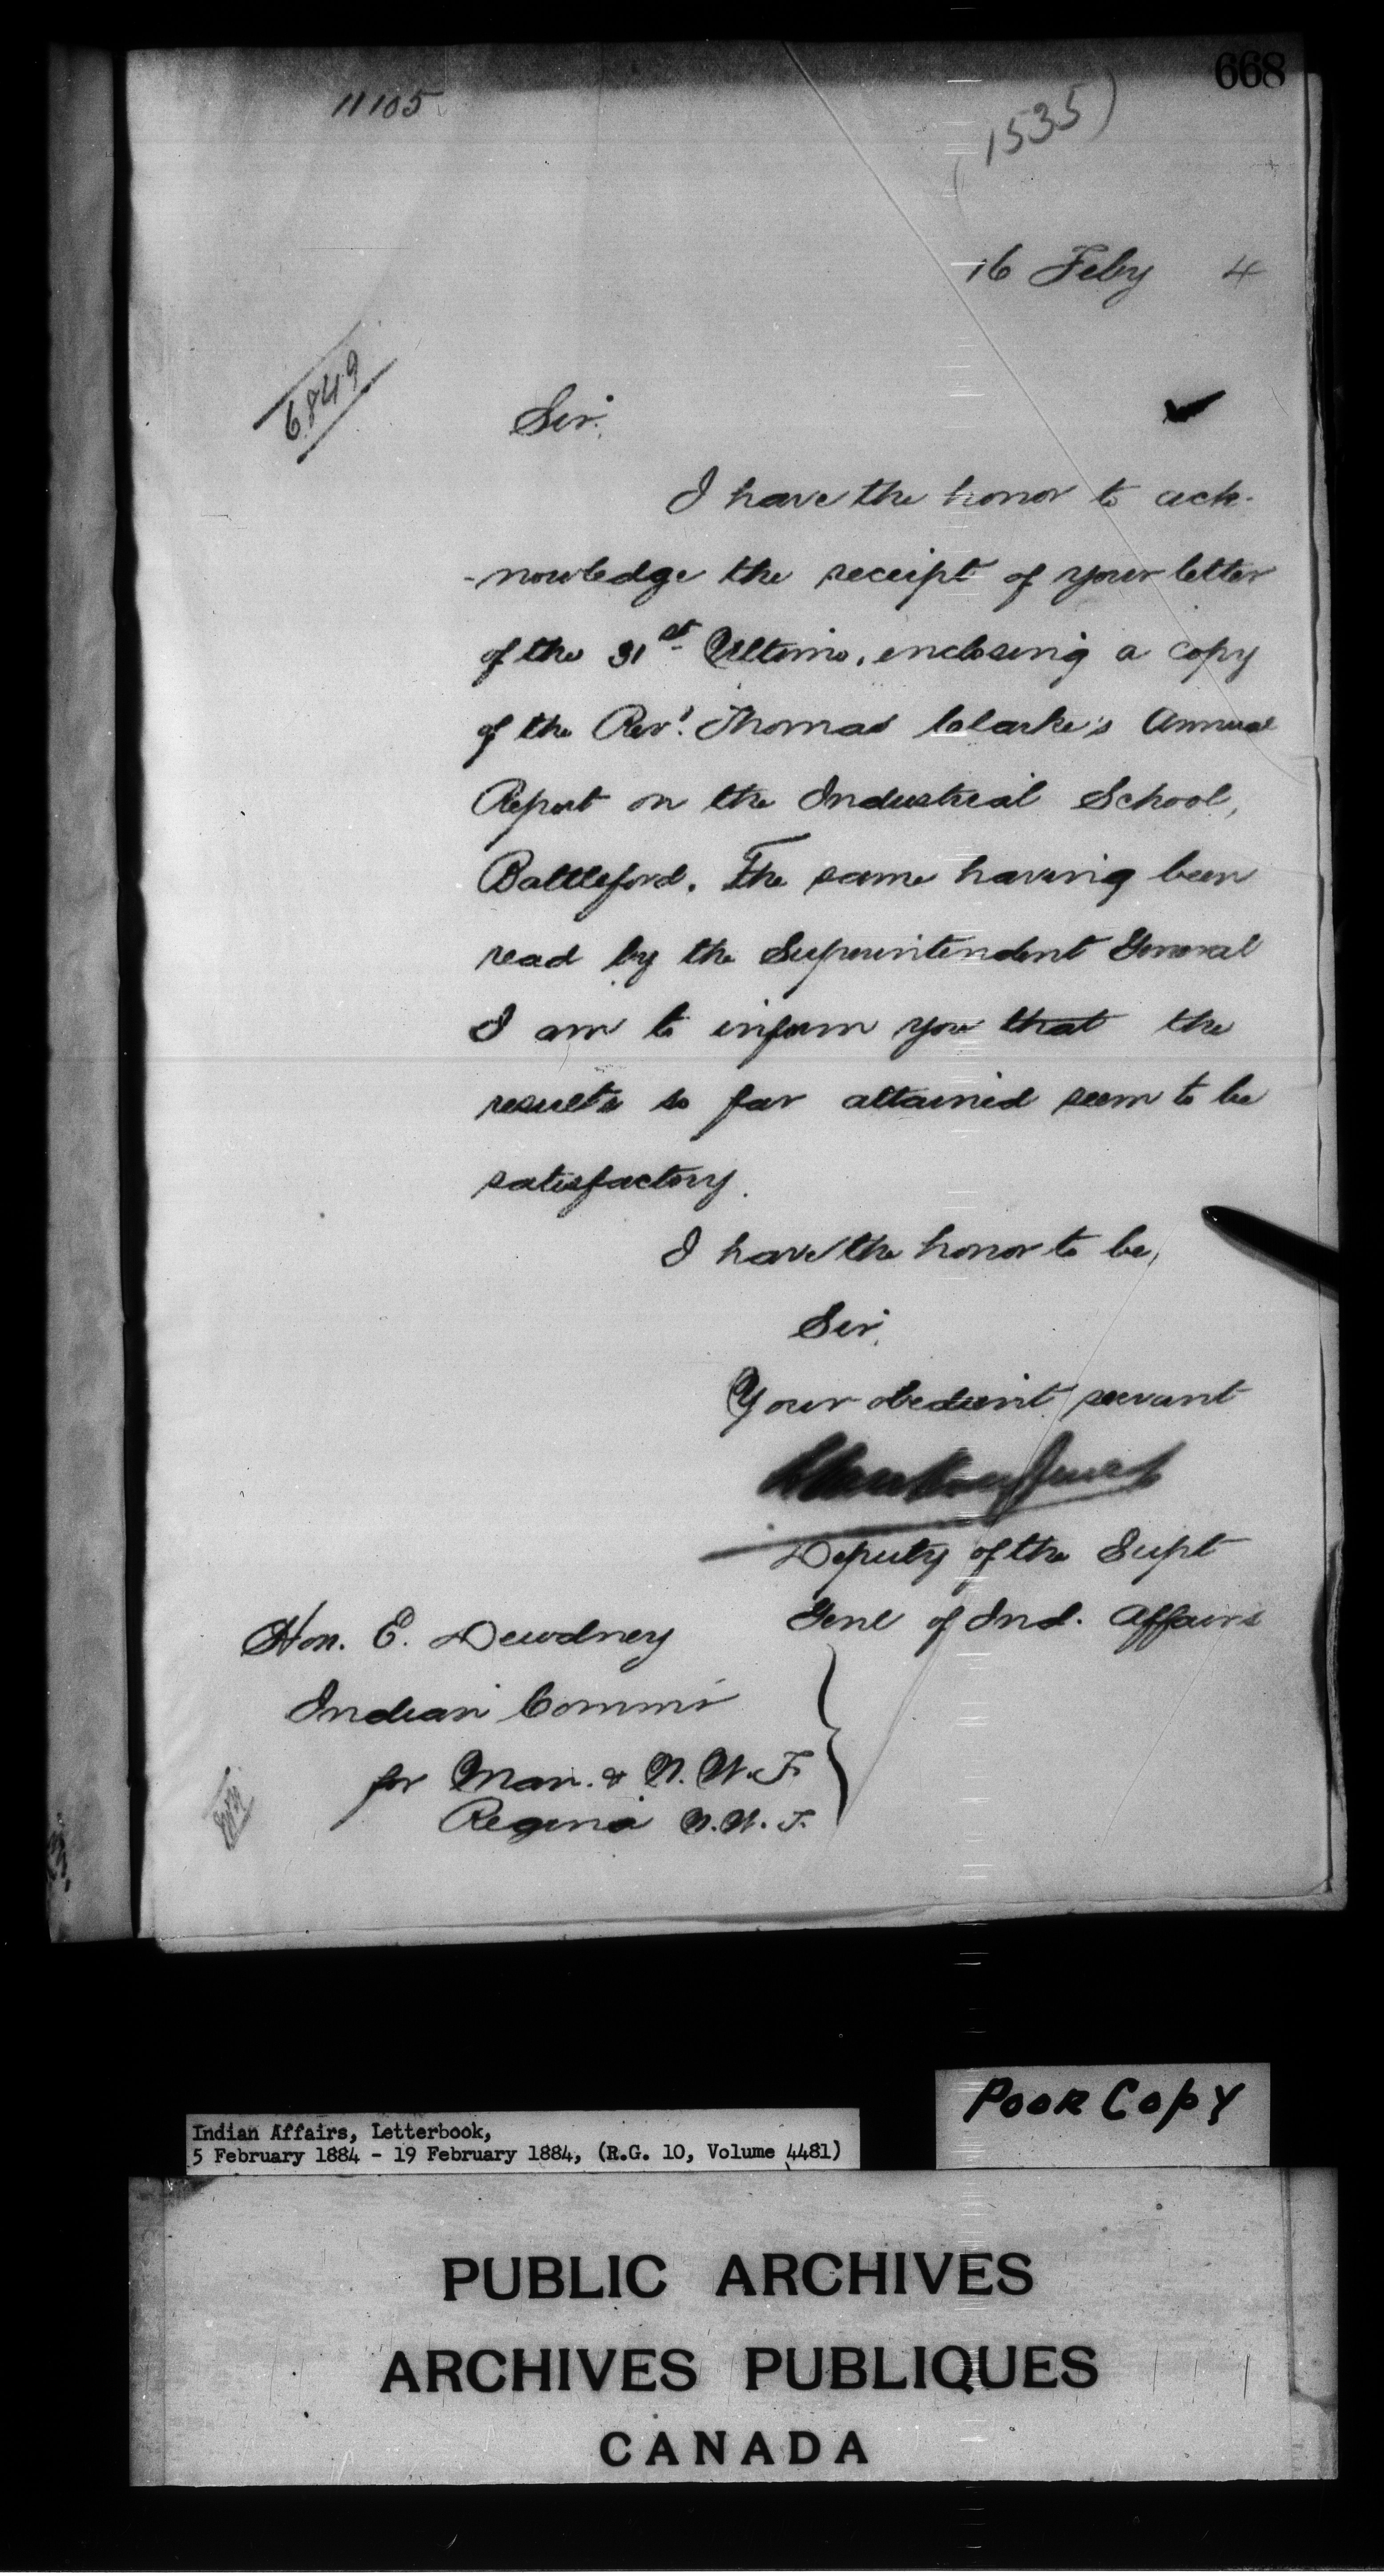 668
11105
(1535)
16 Feby 4
6849
Sir,
I have the honor to ack-
-nowledge the receipt of your letter
of the 31st Ultimo, enclosing a copy
of the Revd. Thomas Clarke's Annual
Report on the Industrial School,
Battleford. The same having been
read by the Superintendent General
I am to inform you that the
results so far attained seem to be
satisfactory.
I have the honor to be,
Sir,
Your obedient servant
Deputy of the Supt
Genl of Ind. Affairs
Hon. E. Dewdney
Indian Commr
for Man. & N.W.T.
Regina N.W.T.
Poor Copy
Indian Affairs, Letterbook,
5 February 1884 - 19 February 1884, (R.G. 10, Volume 4481)
PUBLIC ARCHIVES
ARCHIVES PUBLIQUES
CANADA